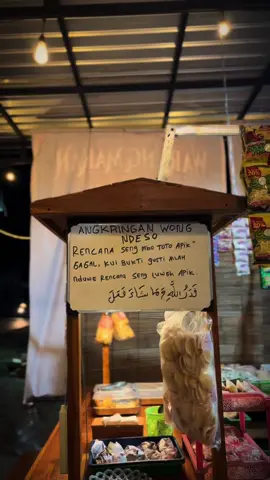 ANGKRINGAN WONG
NDESO
RENCANA SENG MBO TOTO APIK"
GAGAL, KUI BUKTI GUSTI ALLAH
NDUWE RENCANA SENG LUWEH APIK.
قَدَرُ اللّٰهِ وَمَا شَاءَ فَعَلَ